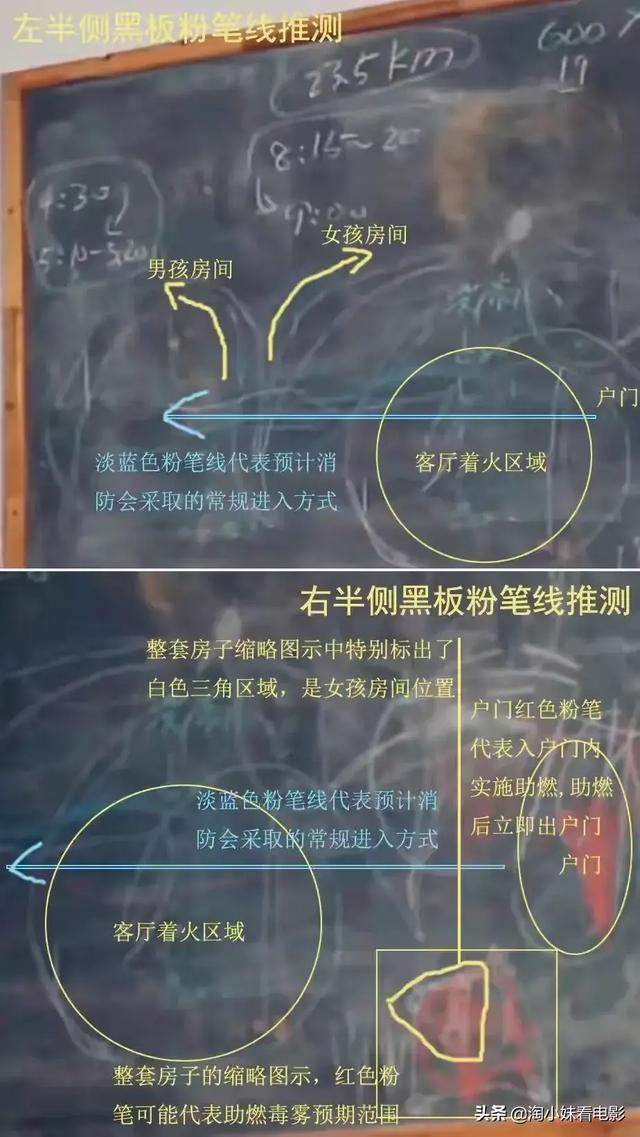 左半侧黑板粉笔线推测
23.5km
600
19
8:15~20
4:30
9:00
5:10-5:20
女孩房间
男孩房间
户门
淡蓝色粉笔线代表预计消
防会采取的常规进入方式
客厅着火区域
右半侧黑板粉笔线推测
整套房子缩略图示中特别标出了
白色三角区域，是女孩房间位置
户门红色粉笔
代表入户门内
实施助燃,助燃
后立即出户门
户门
淡蓝色粉笔线代表预计消
防会采取的常规进入方式
客厅着火区域
整套房子的缩略图示，红色粉
笔可能代表助燃毒雾预期范围
头条 @淘小妹看电影